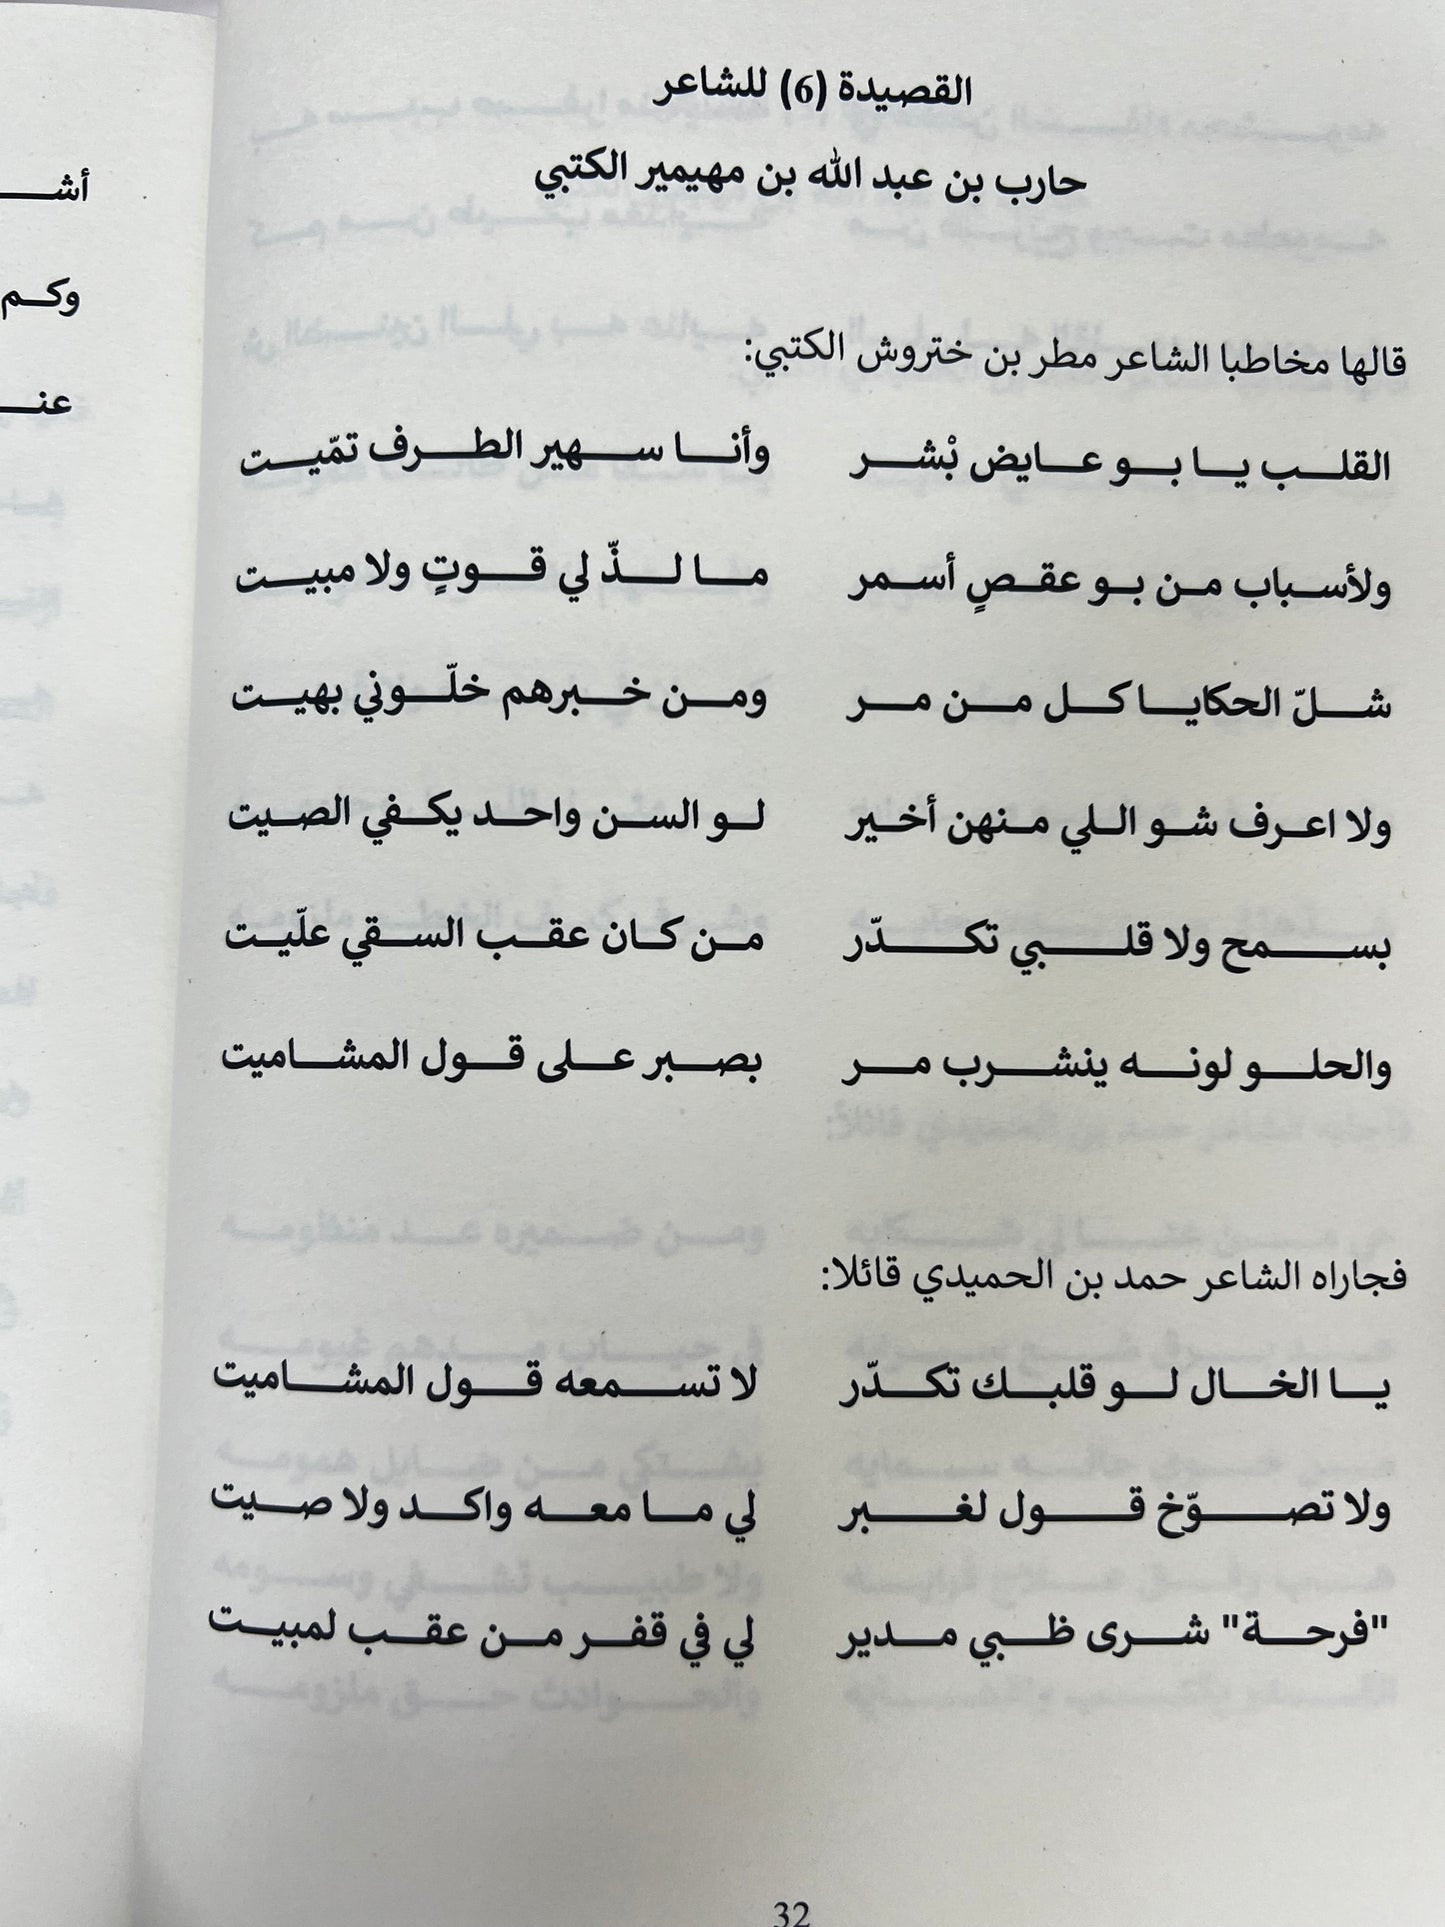 القصيدة (6) للشاعر
حارب بن عبد الله بن مهيمير الكتبي
قالها مخاطبا الشاعر مطر بن ختروش الكتبي:
القلب يا بو عايض بْشر وأنا سهير الطرف تمّيت
ولأسباب من بو عقصٍ أسمر ما لذّ لي قوتٍ ولا مبيت
شلّ الحكايا كل من مر ومن خبرهم خلّوني بهيت
ولا اعرف شو اللي منهن أخير لو السن واحد يكفي الصيت
بسمح ولا قلبي تكدّر من كان عقب السقي علّيت
والحلو لونه ينشرب مر بصبر على قول المشاميت
فجاراه الشاعر حمد بن الحميدي قائلا:
يا الخال لو قلبك تكدّر لا تسمعه قول المشاميت
ولا تصوّخ قول لغبر لي ما معه واكد ولا صيت
"فرحة" شرى ظبي مدير لي في قفر من عقب لمبيت
32
أش
وكم
عن